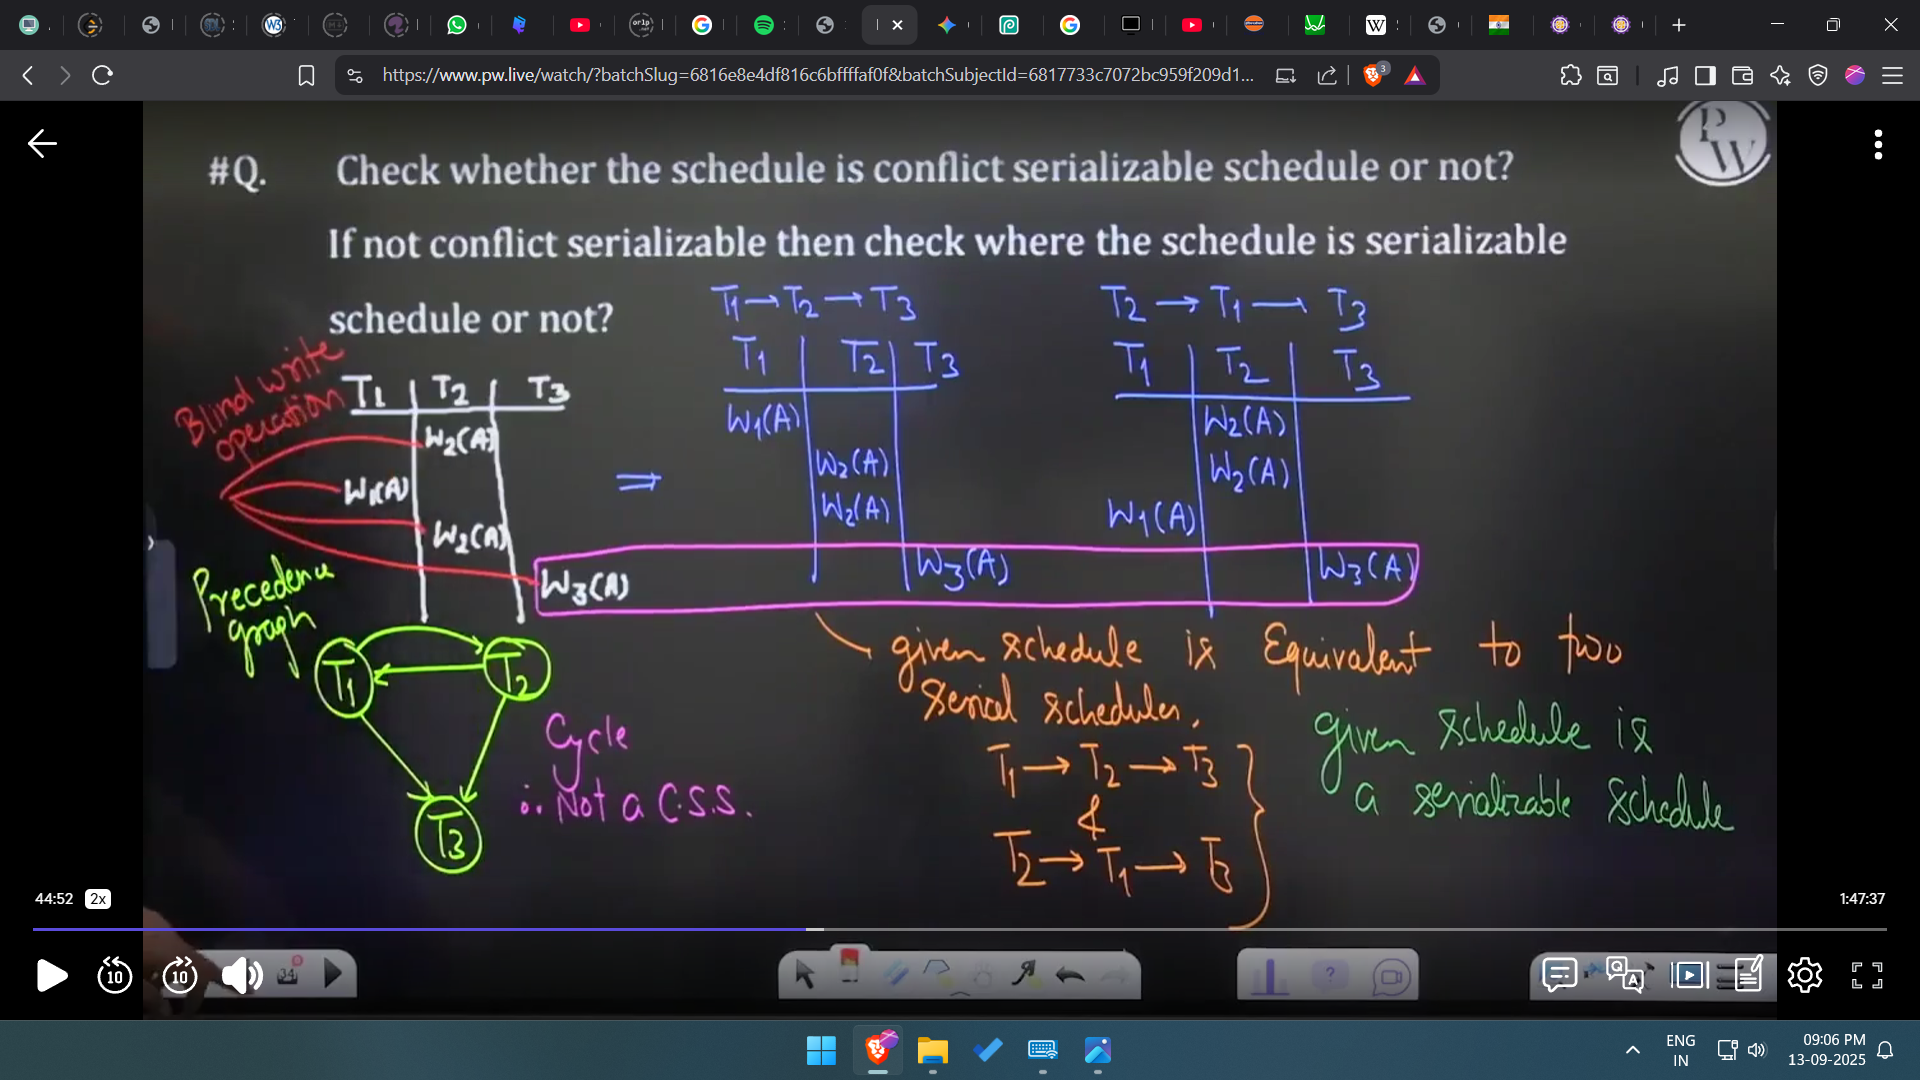 https://www.pw.live/watch/?batchSlug=6816e8e4df816c6bffffaf0f&batchSubjectId=6817733c7072bc959f209d1...
3
PW
#Q. Check whether the schedule is conflict serializable schedule or not?
If not conflict serializable then check where the schedule is serializable
schedule or not?
T1 → T2 → T3
T2 → T1 → T3
Blind write operation
T1 T2 T3
W2(A)
W1(A)
W2(A)
W3(A)
⇒
T1 T2 T3
W1(A)
W2(A)
W2(A)
W3(A)
T1 T2 T3
W2(A)
W2(A)
W1(A)
W3(A)
Precedence graph
T1 T2
T3
Cycle
∴ Not a C.S.S.
given schedule is Equivalent to two
serial schedules.
T1 → T2 → T3
&
T2 → T1 → T3
given schedule is
a serializable schedule
44:52 2x
1:47:37
10 10
34
ENG
IN
09:06 PM
13-09-2025